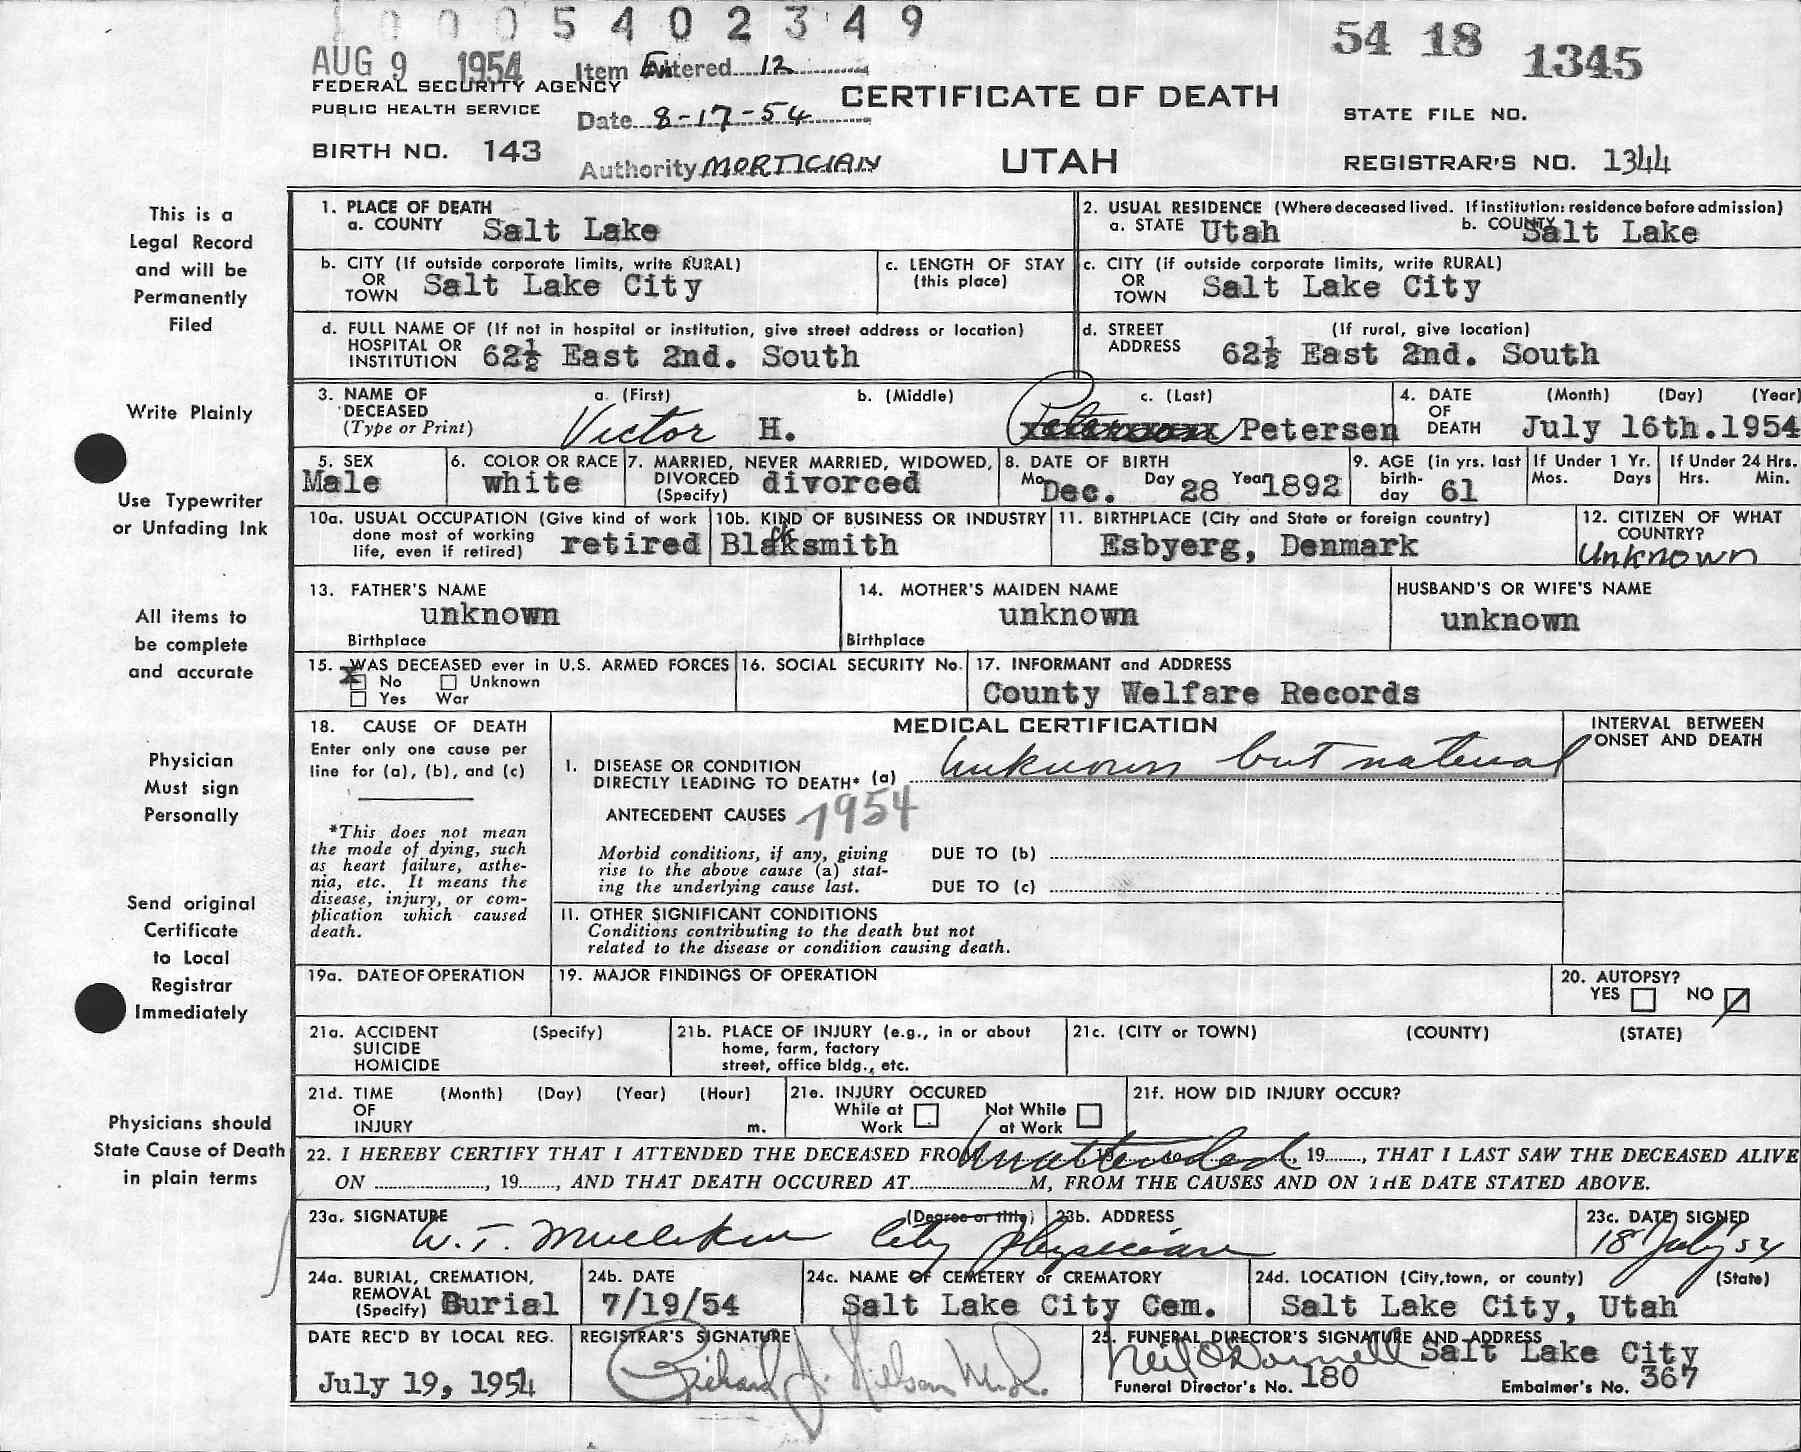 0005402349
AUG 9 1954
Item Entered 12
54 18 1345
FEDERAL SECURITY AGENCY
PUBLIC HEALTH SERVICE
Date 8-17-54
CERTIFICATE OF DEATH
STATE FILE NO.
BIRTH NO. 143
Authority MORTICIAN
UTAH
REGISTRAR'S NO. 1344
This is a
Legal Record
and will be
Permanently
Filed
1. PLACE OF DEATH
a. COUNTY Salt Lake
2. USUAL RESIDENCE (Where deceased lived. If institution: residence before admission)
a. STATE Utah b. COUNTY Salt Lake
b. CITY (If outside corporate limits, write RURAL)
OR
TOWN Salt Lake City
c. LENGTH OF STAY
(this place)
c. CITY (if outside corporate limits, write RURAL)
OR
TOWN Salt Lake City
d. FULL NAME OF (If not in hospital or institution, give street address or location)
HOSPITAL OR
INSTITUTION 62½ East 2nd. South
d. STREET (If rural, give location)
ADDRESS 62½ East 2nd. South
Write Plainly
3. NAME OF a. (First) b. (Middle) c. (Last)
DECEASED
(Type or Print) Victor H. Petersen
4. DATE (Month) (Day) (Year)
OF
DEATH July 16th. 1954
5. SEX
Male
6. COLOR OR RACE
white
7. MARRIED, NEVER MARRIED, WIDOWED,
DIVORCED
(Specify) divorced
8. DATE OF BIRTH
Mo. Dec. Day 28 Year 1892
9. AGE (in yrs. last
birth-
day 61
If Under 1 Yr.
Mos. Days
If Under 24 Hrs.
Hrs. Min.
Use Typewriter
or Unfading Ink
10a. USUAL OCCUPATION (Give kind of work
done most of working
life, even if retired) retired
10b. KIND OF BUSINESS OR INDUSTRY
Blacksmith
11. BIRTHPLACE (City and State or foreign country)
Esbyerg, Denmark
12. CITIZEN OF WHAT
COUNTRY?
Unknown
All items to
be complete
and accurate
13. FATHER'S NAME
unknown
Birthplace
14. MOTHER'S MAIDEN NAME
unknown
Birthplace
HUSBAND'S OR WIFE'S NAME
unknown
15. WAS DECEASED ever in U.S. ARMED FORCES
x No Unknown
Yes War
16. SOCIAL SECURITY No.
17. INFORMANT and ADDRESS
County Welfare Records
Physician
Must sign
Personally
18. CAUSE OF DEATH
Enter only one cause per
line for (a), (b), and (c)
*This does not mean
the mode of dying, such
as heart failure, asthe-
nia, etc. It means the
disease, injury, or com-
plication which caused
death.
MEDICAL CERTIFICATION
INTERVAL BETWEEN
ONSET AND DEATH
I. DISEASE OR CONDITION
DIRECTLY LEADING TO DEATH* (a) Unknown but natural
ANTECEDENT CAUSES 1954
Morbid conditions, if any, giving
rise to the above cause (a) stat-
ing the underlying cause last.
DUE TO (b)
DUE TO (c)
II. OTHER SIGNIFICANT CONDITIONS
Conditions contributing to the death but not
related to the disease or condition causing death.
Send original
Certificate
to Local
Registrar
Immediately
19a. DATE OF OPERATION
19. MAJOR FINDINGS OF OPERATION
20. AUTOPSY?
YES NO
21a. ACCIDENT (Specify)
SUICIDE
HOMICIDE
21b. PLACE OF INJURY (e.g., in or about
home, farm, factory
street, office bldg., etc.
21c. (CITY or TOWN) (COUNTY) (STATE)
21d. TIME (Month) (Day) (Year) (Hour)
OF
INJURY m.
21e. INJURY OCCURED
While at Work Not While at Work
21f. HOW DID INJURY OCCUR?
Physicians should
State Cause of Death
in plain terms
22. I HEREBY CERTIFY THAT I ATTENDED THE DECEASED FROM Unattended, 19......, THAT I LAST SAW THE DECEASED ALIVE
ON ...................., 19......, AND THAT DEATH OCCURED AT....................M, FROM THE CAUSES AND ON THE DATE STATED ABOVE.
23a. SIGNATURE (Degree or title)
W. T. City Physician
23b. ADDRESS
23c. DATE SIGNED
18 July 54
24a. BURIAL, CREMATION,
REMOVAL
(Specify) Burial
24b. DATE
7/19/54
24c. NAME OF CEMETERY or CREMATORY
Salt Lake City Cem.
24d. LOCATION (City, town, or county) (State)
Salt Lake City, Utah
DATE REC'D BY LOCAL REG.
July 19, 1954
REGISTRAR'S SIGNATURE
Richard J. Nelson M.D.
25. FUNERAL DIRECTOR'S SIGNATURE AND ADDRESS
Neil O'Donnell Salt Lake City
Funeral Director's No. 180 Embalmer's No. 367